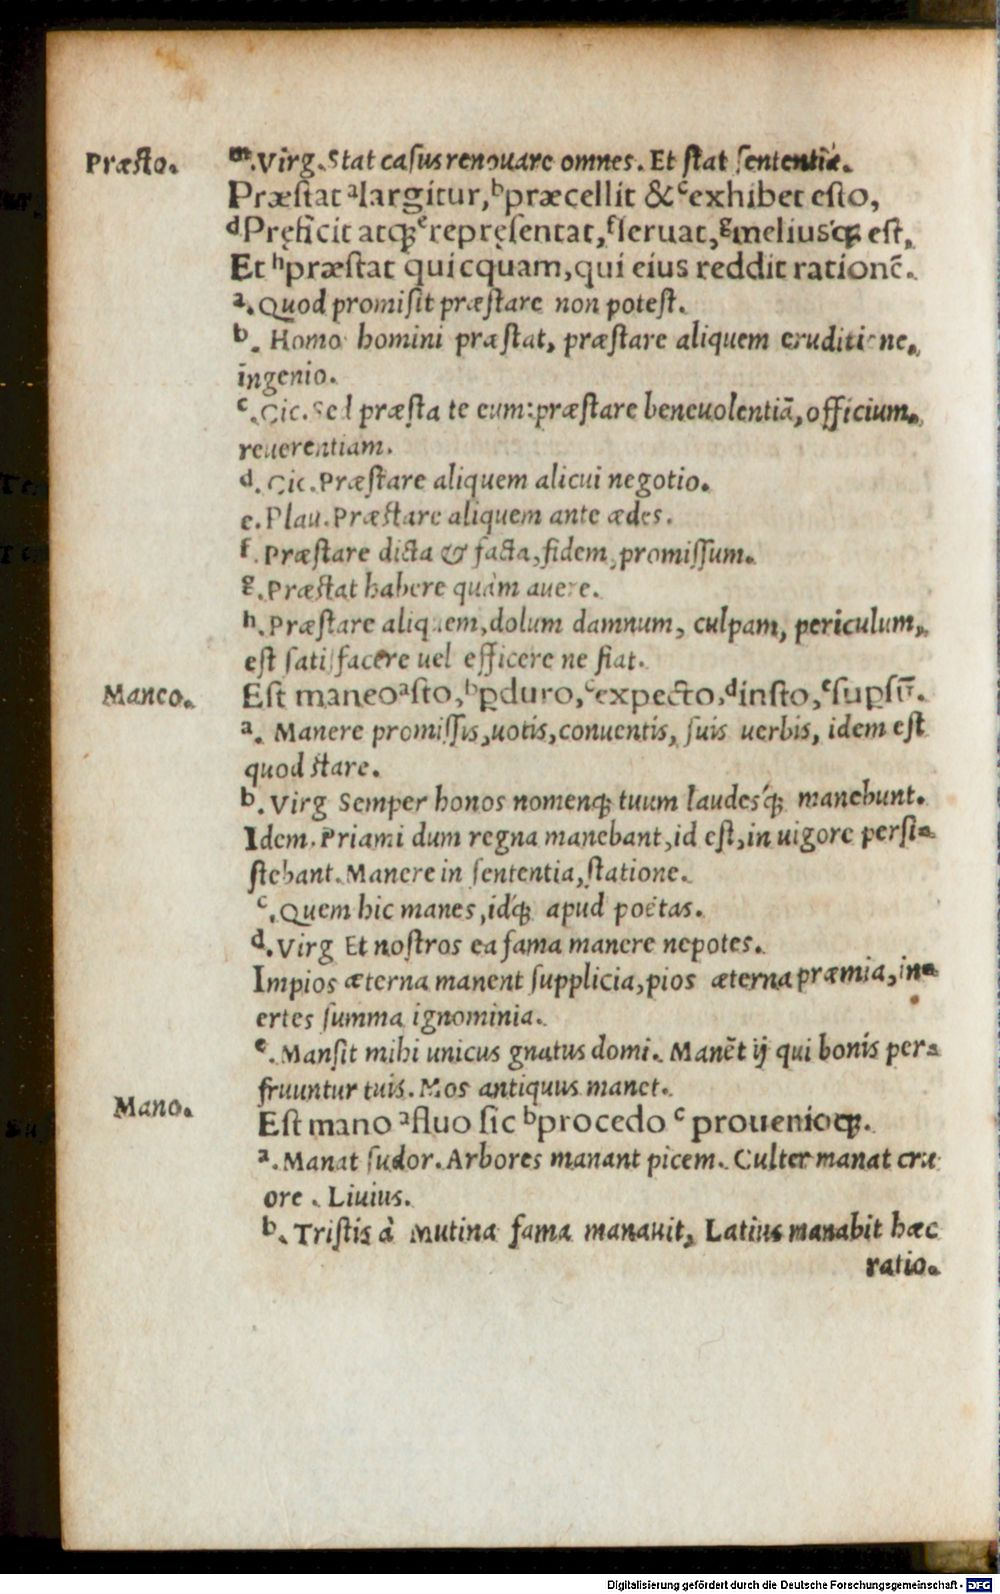 Præsto.
m. Virg. Stat casus renouare omnes. Et stat sententia.
Præstat ᵃlargitur, ᵇpræcellit & ᶜexhibet esto,
ᵈPręficit atqꝫ ᵉrepręsentat, ᶠseruat, ᵍmelius'qꝫ est,
Et ʰpræstat quicquam, qui eius reddit rationē.
a. Quod promisit præstare non potest.
b. Homo homini præstat, præstare aliquem eruditione,
ingenio.
c. Cic. Sed præsta te eum: præstare beneuolentiā, officium,
reuerentiam.
d. Cic. Præstare aliquem alicui negotio.
e. Plau. Præstare aliquem ante ædes.
f. Præstare dicta & facta, fidem, promissum.
g. Præstat habere quàm auere.
h. Præstare aliquem, dolum damnum, culpam, periculum,
est satisfacere uel efficere ne fiat.
Maneo.
Est maneo ᵃsto, ᵇꝑduro, ᶜexpecto, ᵈinsto, ᵉsuꝑsū.
a. Manere promissis, uotis, conuentis, suis uerbis, idem est
quod stare.
b. Virg Semper honos nomenqꝫ tuum laudes'qꝫ manebunt.
Idem. Priami dum regna manebant, id est, in uigore persi-
stebant. Manere in sententia, statione.
c. Quem hic manes, idqꝫ apud poëtas.
d. Virg Et nostros ea fama manere nepotes.
Impios æterna manent supplicia, pios æterna præmia, in-
ertes summa ignominia.
e. Mansit mihi unicus gnatus domi. Manēt ij qui bonis per-
fruuntur tuis. Mos antiquus manet.
Mano.
Est mano ᵃfluo sic ᵇprocedo ᶜ prouenioqꝫ.
a. Manat sudor. Arbores manant picem. Culter manat cru
ore. Liuius.
b. Tristis à Mutina fama manauit, Latius manabit hæc
ratio.
Digitalisierung gefördert durch die Deutsche Forschungsgemeinschaft - DFG